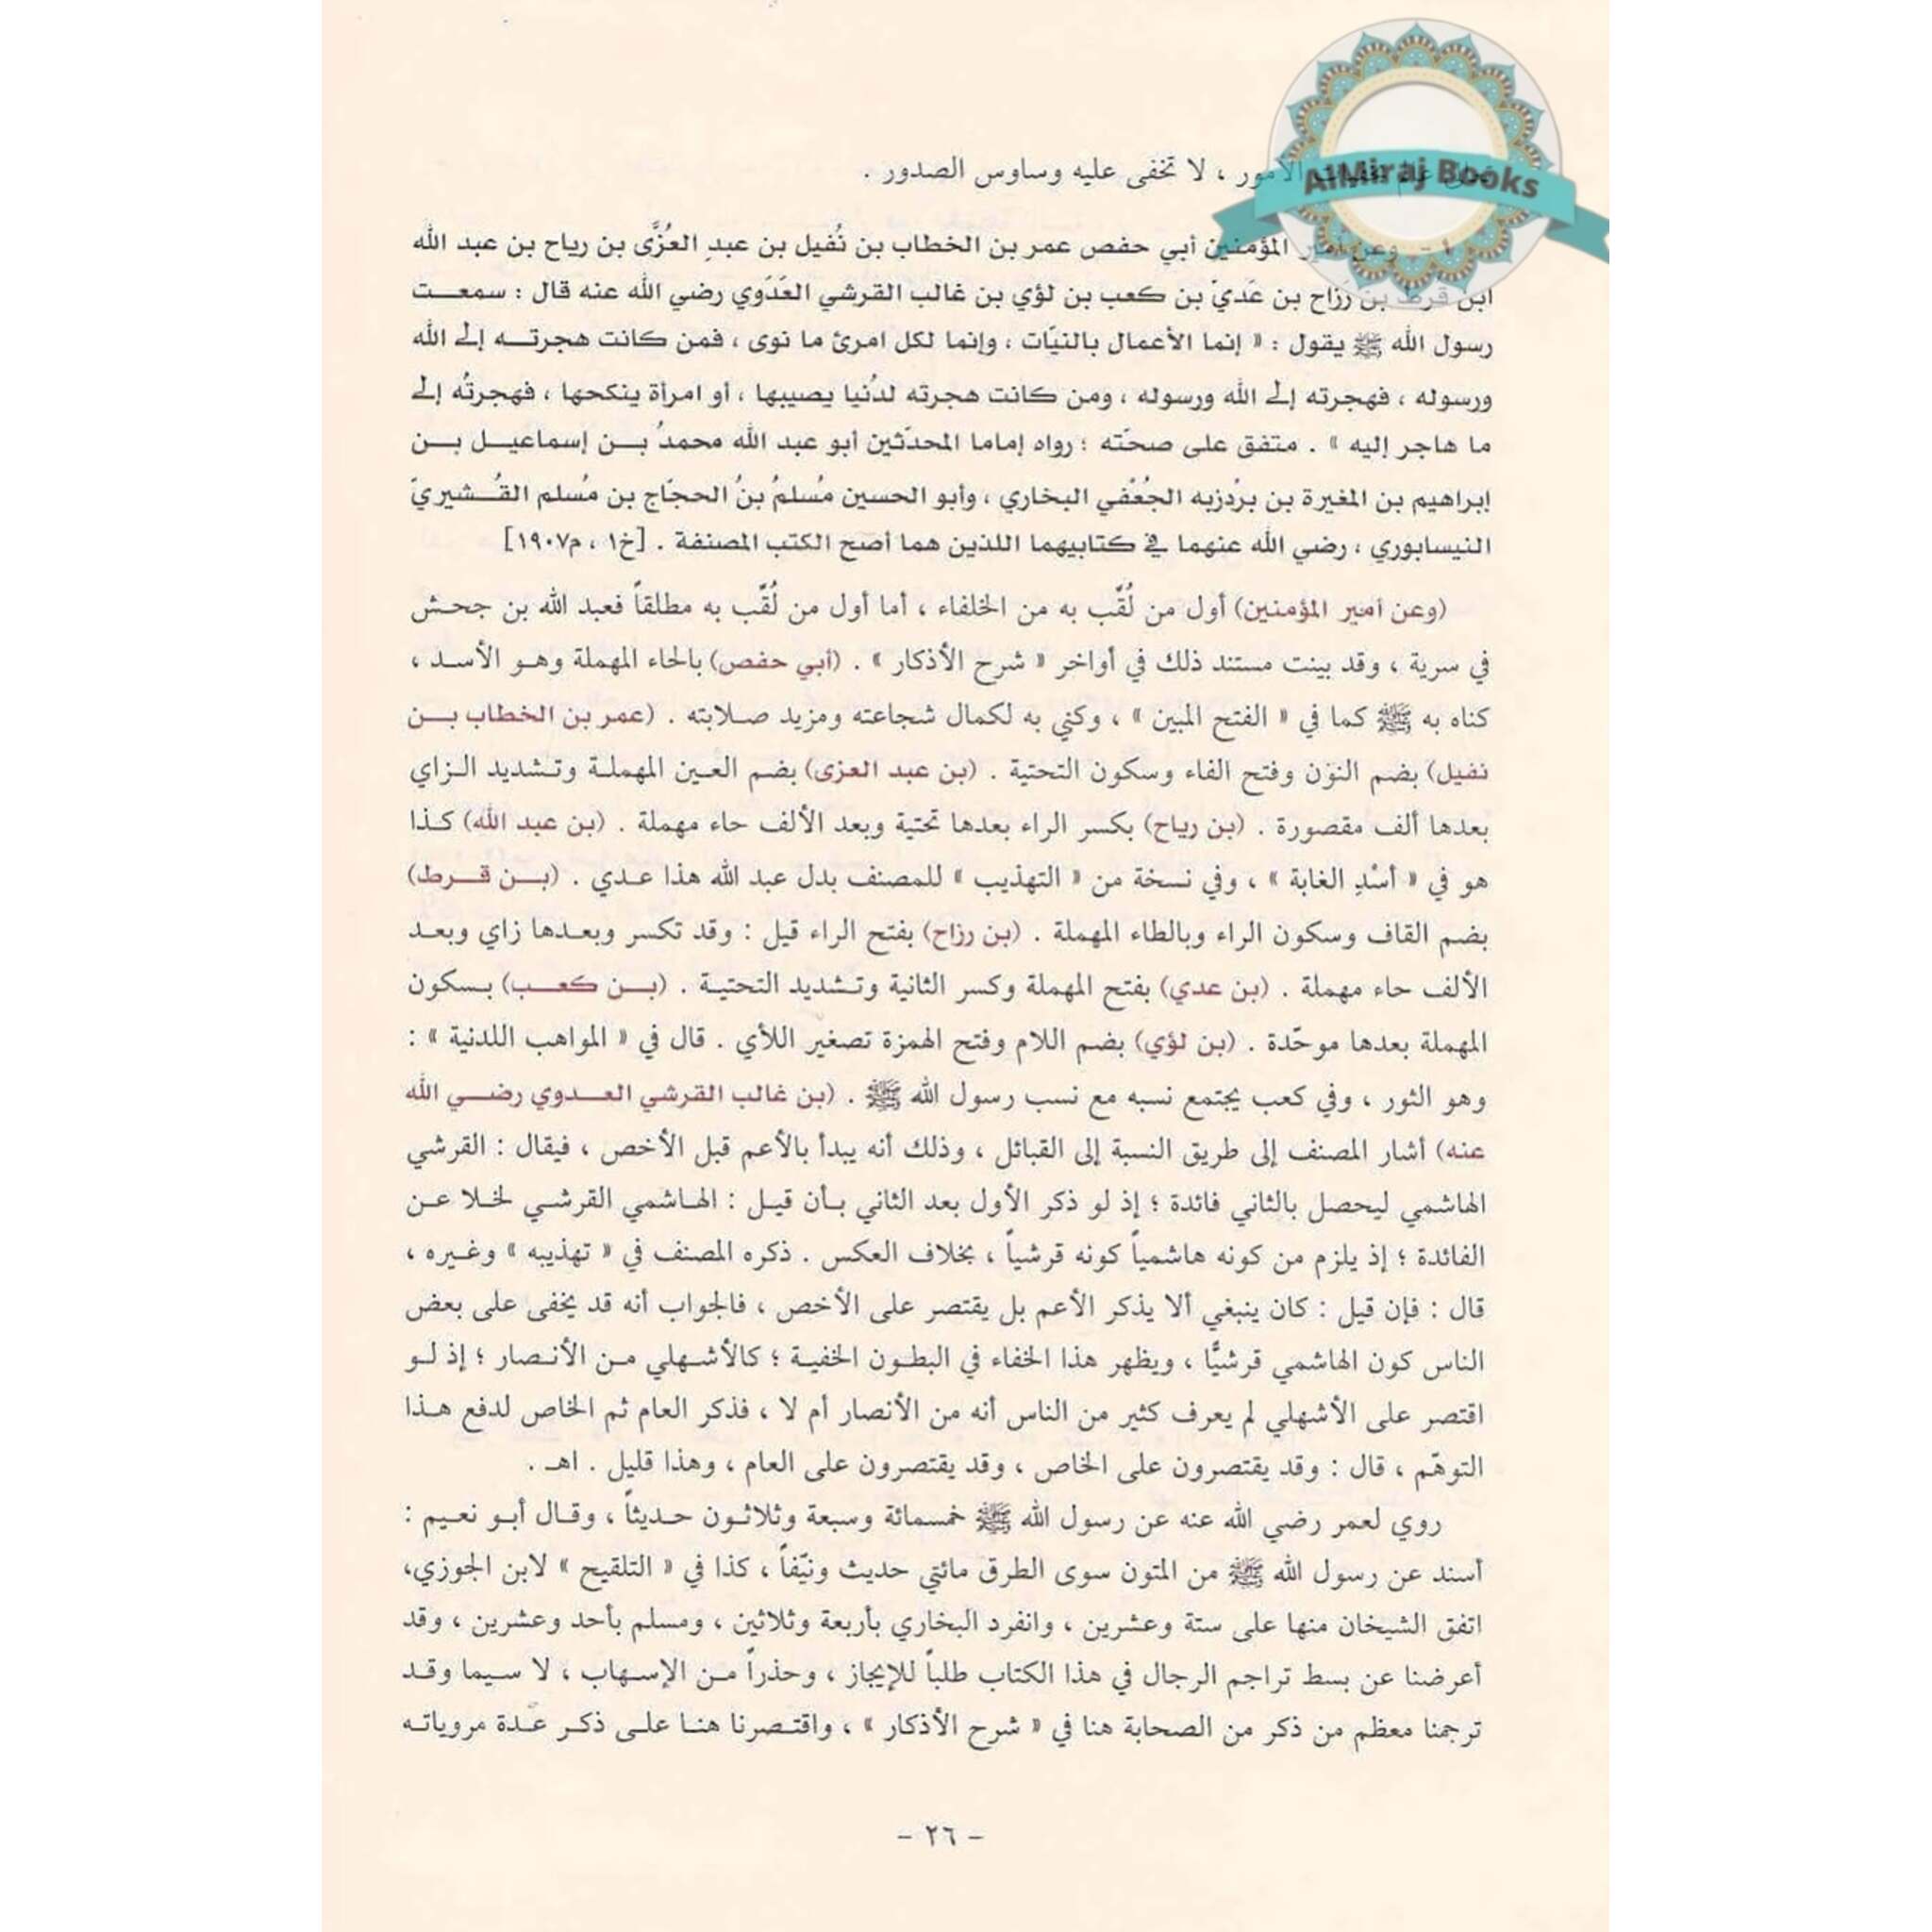 AlMiraj Books
الأمور ، لا تخفى عليه وساوس الصدور .
١ - وعن أمير المؤمنين أبي حفص عمر بن الخطاب بن نُفيل بن عبدِ العُزَّى بن رياح بن عبد الله
ابن قرط بن رَزاح بن عَديّ بن كعب بن لؤي بن غالب القرشي العَدَوي رضي الله عنه قال : سمعت
رسول الله ﷺ يقول : « إنما الأعمال بالنيّات ، وإنما لكل امرئ ما نوى ، فمن كانت هجرته إلى الله
ورسوله ، فهجرته إلى الله ورسوله ، ومن كانت هجرته لدُنيا يصيبها ، أو امرأة ينكحها ، فهجرتُه إلى
ما هاجر إليه » . متفق على صحّته ؛ رواه إماما المحدّثين أبو عبد الله محمدُ بن إسماعيل بن
إبراهيم بن المغيرة بن بردزبه الجُعْفي البخاري ، وأبو الحسين مُسلمُ بنُ الحجّاج بن مُسلم القُشيريّ
النيسابوري ، رضي الله عنهما في كتابيهما اللذين هما أصح الكتب المصنفة . [خ١ ، م١٩٠٧]
(وعن أمير المؤمنين) أول من لُقّب به من الخلفاء ، أما أول من لُقّب به مطلقاً فعبد الله بن جحش
في سرية ، وقد بينت مستند ذلك في أواخر « شرح الأذكار » . (أبي حفص) بالحاء المهملة وهو الأسد ،
كناه به ﷺ كما في « الفتح المبين » ، وكني به لكمال شجاعته ومزيد صلابته . (عمر بن الخطاب بن
نفيل) بضم النون وفتح الفاء وسكون التحتية . (بن عبد العزى) بضم العين المهملة وتشديد الزاي
بعدها ألف مقصورة . (بن رياح) بكسر الراء بعدها تحتية وبعد الألف حاء مهملة . (بن عبد الله) كذا
هو في « أسْدِ الغابة » ، وفي نسخة من « التهذيب » للمصنف بدل عبد الله هذا عدي . (بن قرط)
بضم القاف وسكون الراء وبالطاء المهملة . (بن رزاح) بفتح الراء قيل : وقد تكسر وبعدها زاي وبعد
الألف حاء مهملة . (بن عدي) بفتح المهملة وكسر الثانية وتشديد التحتية . (بن كعب) بسكون
المهملة بعدها موحّدة . (بن لؤي) بضم اللام وفتح الهمزة تصغير اللأي . قال في « المواهب اللدنية » :
وهو الثور ، وفي كعب يجتمع نسبه مع نسب رسول الله ﷺ . (بن غالب القرشي العدوي رضي الله
عنه) أشار المصنف إلى طريق النسبة إلى القبائل ، وذلك أنه يبدأ بالأعم قبل الأخص ، فيقال : القرشي
الهاشمي ليحصل بالثاني فائدة ؛ إذ لو ذكر الأول بعد الثاني بأن قيل : الهاشمي القرشي لخلا عن
الفائدة ؛ إذ يلزم من كونه هاشمياً كونه قرشياً ، بخلاف العكس . ذكره المصنف في « تهذيبه » وغيره ،
قال : فإن قيل : كان ينبغي ألا يذكر الأعم بل يقتصر على الأخص ، فالجواب أنه قد يخفى على بعض
الناس كون الهاشمي قرشيًّا ، ويظهر هذا الخفاء في البطون الخفية ؛ كالأشهلي من الأنصار ؛ إذ لو
اقتصر على الأشهلي لم يعرف كثير من الناس أنه من الأنصار أم لا ، فذكر العام ثم الخاص لدفع هذا
التوهّم ، قال : وقد يقتصرون على الخاص ، وقد يقتصرون على العام ، وهذا قليل . اهـ .
روي لعمر رضي الله عنه عن رسول الله ﷺ خمسمائة وسبعة وثلاثون حديثاً ، وقال أبو نعيم :
أسند عن رسول الله ﷺ من المتون سوى الطرق مائتي حديث ونيّفاً ، كذا في « التلقيح » لابن الجوزي،
اتفق الشيخان منها على ستة وعشرين ، وانفرد البخاري بأربعة وثلاثين ، ومسلم بأحد وعشرين ، وقد
أعرضنا عن بسط تراجم الرجال في هذا الكتاب طلباً للإيجاز ، وحذراً من الإسهاب ، لا سيما وقد
ترجمنا معظم من ذكر من الصحابة هنا في « شرح الأذكار » ، واقتصرنا هنا على ذكر عدة مروياته
- ٢٦ -